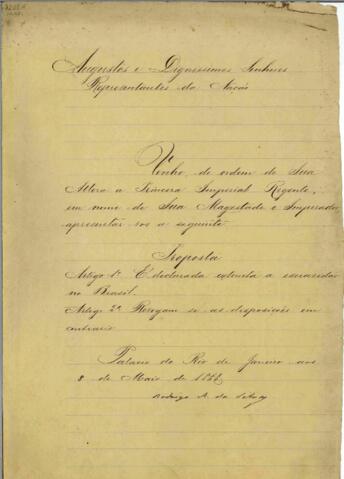 Augustos e Dignissimos Senhores
Representantes da Nação
Venho, de ordem de Sua
Alteza a Princeza Imperial Regente,
em nome de Sua Magestade o Imperador,
apresentar-vos a seguinte
Proposta
Artigo 1º É declarada extincta a escravidão
no Brasil.
Artigo 2º Revogam-se as disposições em
contrario
Palacio do Rio de Janeiro aos
8 de Maio de 1888
Rodrigo A. da Silva